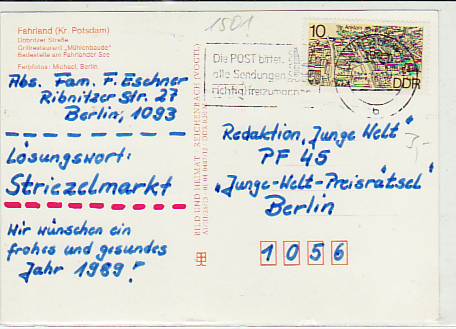 Fahrland (Kr. Potsdam)
Döbritzer Straße
Grillrestaurant „Mühlenbaude"
Badestelle am Fahrlander See
Farbfotos: Michael, Berlin
Abs. Fam. F. Eschner
Ribnitzer Str. 27
Berlin, 1093
Lösungswort:
Striezelmarkt
Wir wünschen ein
frohes und gesundes
Jahr 1989!
BILD UND HEIMAT REICHENBACH (VOGTL)
1501
Die POST bittet:
alle Sendungen
richtig freizumachen
10
DDR
b
Redaktion „Junge Welt"
PF 45
„Junge-Welt-Preisrätsel"
Berlin
3,-
1056